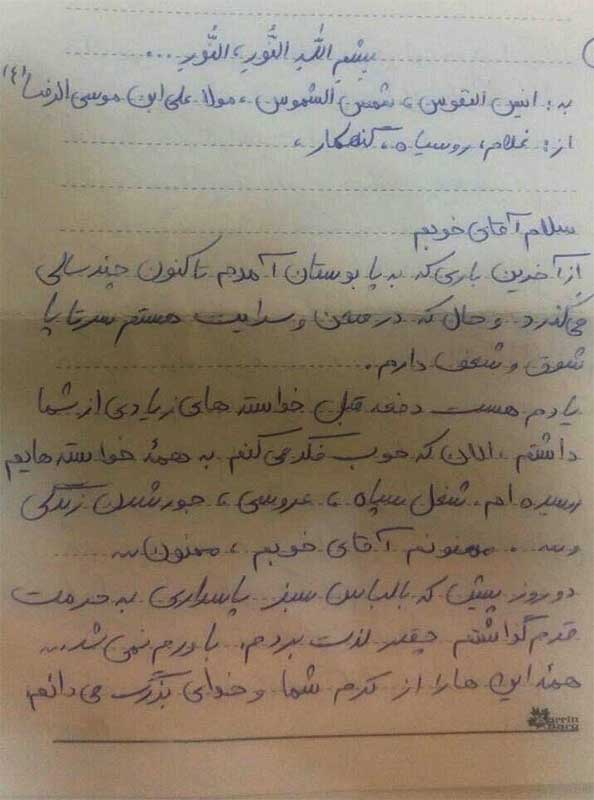 بِسْمِ اللهِ النُّورِ، النُّورِ ...
به: انیس النفوس، شمس الشموس، مولا علی ابن موسی الرضا (ع)
از: غلام، روسیاه، گنهکار،
سلام آقای خوبم
از آخرین باری که به پابوستان آمدم تا کنون چند سالی
می‌گذرد و حال که در صحن و سرایت هستم سر تا پا
شوق و شعف دارم.
یادم هست دفعه قبل خواسته های زیادی از شما
داشتم، الان که خوب فکر می کنم به همهٔ خواسته هایم
رسیده ام. شغل سپاه، عروسی، جور شدن زندگی
و... . ممنونم آقای خوبم، ممنون...
دو روز پیش که با لباس سبز پاسداری به حرمت
قدم گذاشتم چقدر لذت بردم. باورم نمی شد...
همهٔ این ها را از کرم شما و خدای بزرگ می دانم